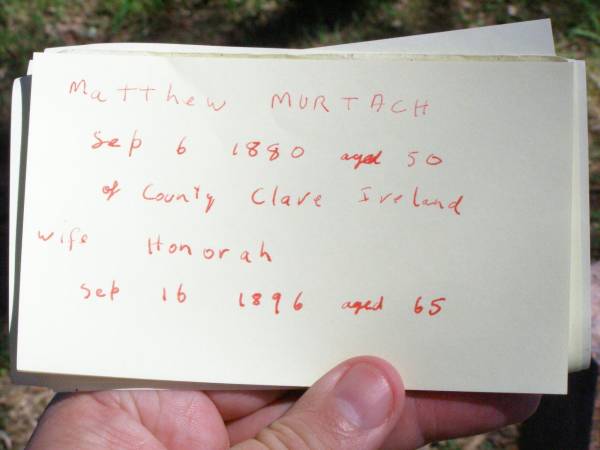 Matthew MURTACH
Sep 6 1880 aged 50
of County Clare Ireland
wife Honorah
Sep 16 1896 aged 65